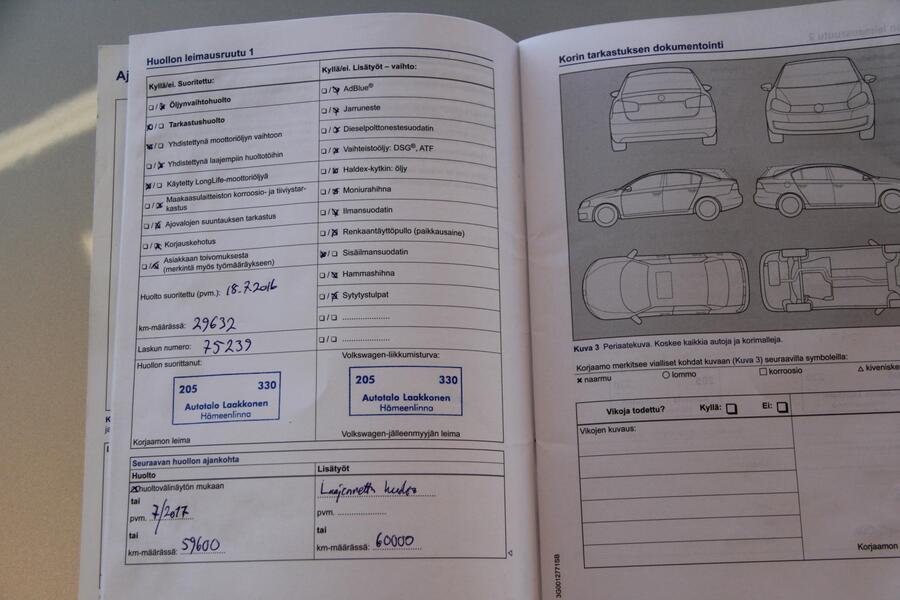 Huollon leimausruutu 1
Kyllä/ei. Suoritettu:
❏ / ❏ Öljynvaihtohuolto
❏ / ❏ Tarkastushuolto
❏ / ❏ Yhdistettynä moottoriöljyn vaihtoon
❏ / ❏ Yhdistettynä laajempiin huoltotöihin
❏ / ❏ Käytetty LongLife-moottoriöljyä
❏ / ❏ Maakaasulaitteiston korroosio- ja tiiviystar-
kastus
❏ / ❏ Ajovalojen suuntauksen tarkastus
❏ / ❏ Korjauskehotus
❏ / ❏ Asiakkaan toivomuksesta
(merkintä myös työmääräykseen)
Huolto suoritettu (pvm.): 18.7.2016
km-määrässä: 29632
Laskun numero: 75239
Huollon suorittanut:
205 330
Autotalo Laakkonen
Hämeenlinna
Korjaamon leima
Kyllä/ei. Lisätyöt – vaihto:
❏ / ❏ AdBlue®
❏ / ❏ Jarruneste
❏ / ❏ Dieselpolttonestesuodatin
❏ / ❏ Vaihteistoöljy: DSG®, ATF
❏ / ❏ Haldex-kytkin: öljy
❏ / ❏ Moniurahihna
❏ / ❏ Ilmansuodatin
❏ / ❏ Renkaantäyttöpullo (paikkausaine)
❏ / ❏ Sisäilmansuodatin
❏ / ❏ Hammashihna
❏ / ❏ Sytytystulpat
❏ / ❏ ......................
❏ / ❏ ......................
Volkswagen-liikkumisturva:
205 330
Autotalo Laakkonen
Hämeenlinna
Volkswagen-jälleenmyyjän leima
Seuraavan huollon ajankohta
Huolto
huoltovälinäytön mukaan
tai
pvm. 7/2017
tai
km-määrässä: 59600
Lisätyöt
Laajennettu huolto
pvm. ................
tai
km-määrässä: 60000
Korin tarkastuksen dokumentointi
Kuva 3 Periaatekuva. Koskee kaikkia autoja ja korimalleja.
Korjaamo merkitsee vialliset kohdat kuvaan (Kuva 3) seuraavilla symboleilla:
× naarmu ○ lommo □ korroosio △ kiveniske
Vikoja todettu? Kyllä: ❏ Ei: ❏
Vikojen kuvaus:
Korjaamon
3G0012771SB